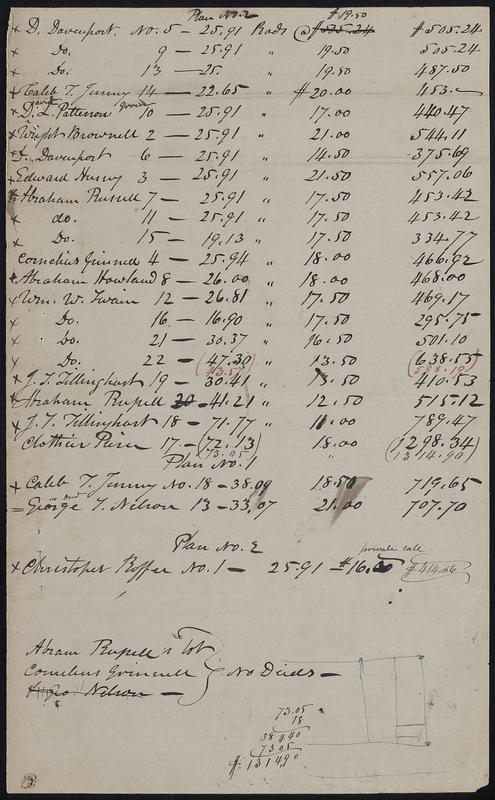 Plan No. 2 $19.50
x D. Davenport. No. 5 - 25.91 Rods @ $525.24 $505.24
x Do. 9 - 25.91 " 19.50 505.24
x Do. 13 - 25. " 19.50 487.50
x Caleb T. Jenny 14 - 22.65 " $20.00 453.-
x David L. Patterson 10 - 25.91 " 17.00 440.47
x Wright Brownell 2 - 25.91 " 21.00 544.11
x D. Davenport 6 - 25.91 " 14.50 375.69
x Edward Hussy 3 - 25.91 " 21.50 557.06
x Abraham Russell 7 - 25.91 " 17.50 453.42
x do. 11 - 25.91 " 17.50 453.42
x Do. 15 - 19.13 " 17.50 334.77
Cornelius Grinnell 4 - 25.94 " 18.00 466.92
x Abraham Howland 8 - 26.00 " 18.00 468.00
x Wm. W. Swain 12 - 26.81 " 17.50 469.17
x Do. 16 - 16.90 " 17.50 295.75
x Do. 21 - 30.37 " 16.50 501.10
x Do. 22 - (47.30) " 13.50 (638.55)
x J. T. Tillinghast 19 - 30.41 " 13.50 410.53
x Abraham Russell 20 - 41.21 " 12.50 515.12
x J. T. Tillinghast 18 - 71.77 " 11.00 789.47
Clothier Peirce 17 - (72.13) " 18.00 (1298.34)
73.05 " 1314.90)
Plan No. 1
x Caleb T. Jenny No. 18 - 38.09 18.50 719.65
= George and T. Nelson 13 - 33.07 21.00 707.70
Plan No. 2
private sale
x Christopher No. 1 - 25.91 - $16.00 $414.56
Abram Russell's Lot
Cornelius Grinnell } No Deeds -
Geo. Nelson -
73.05
18
584 40
7305
$ 1314.90